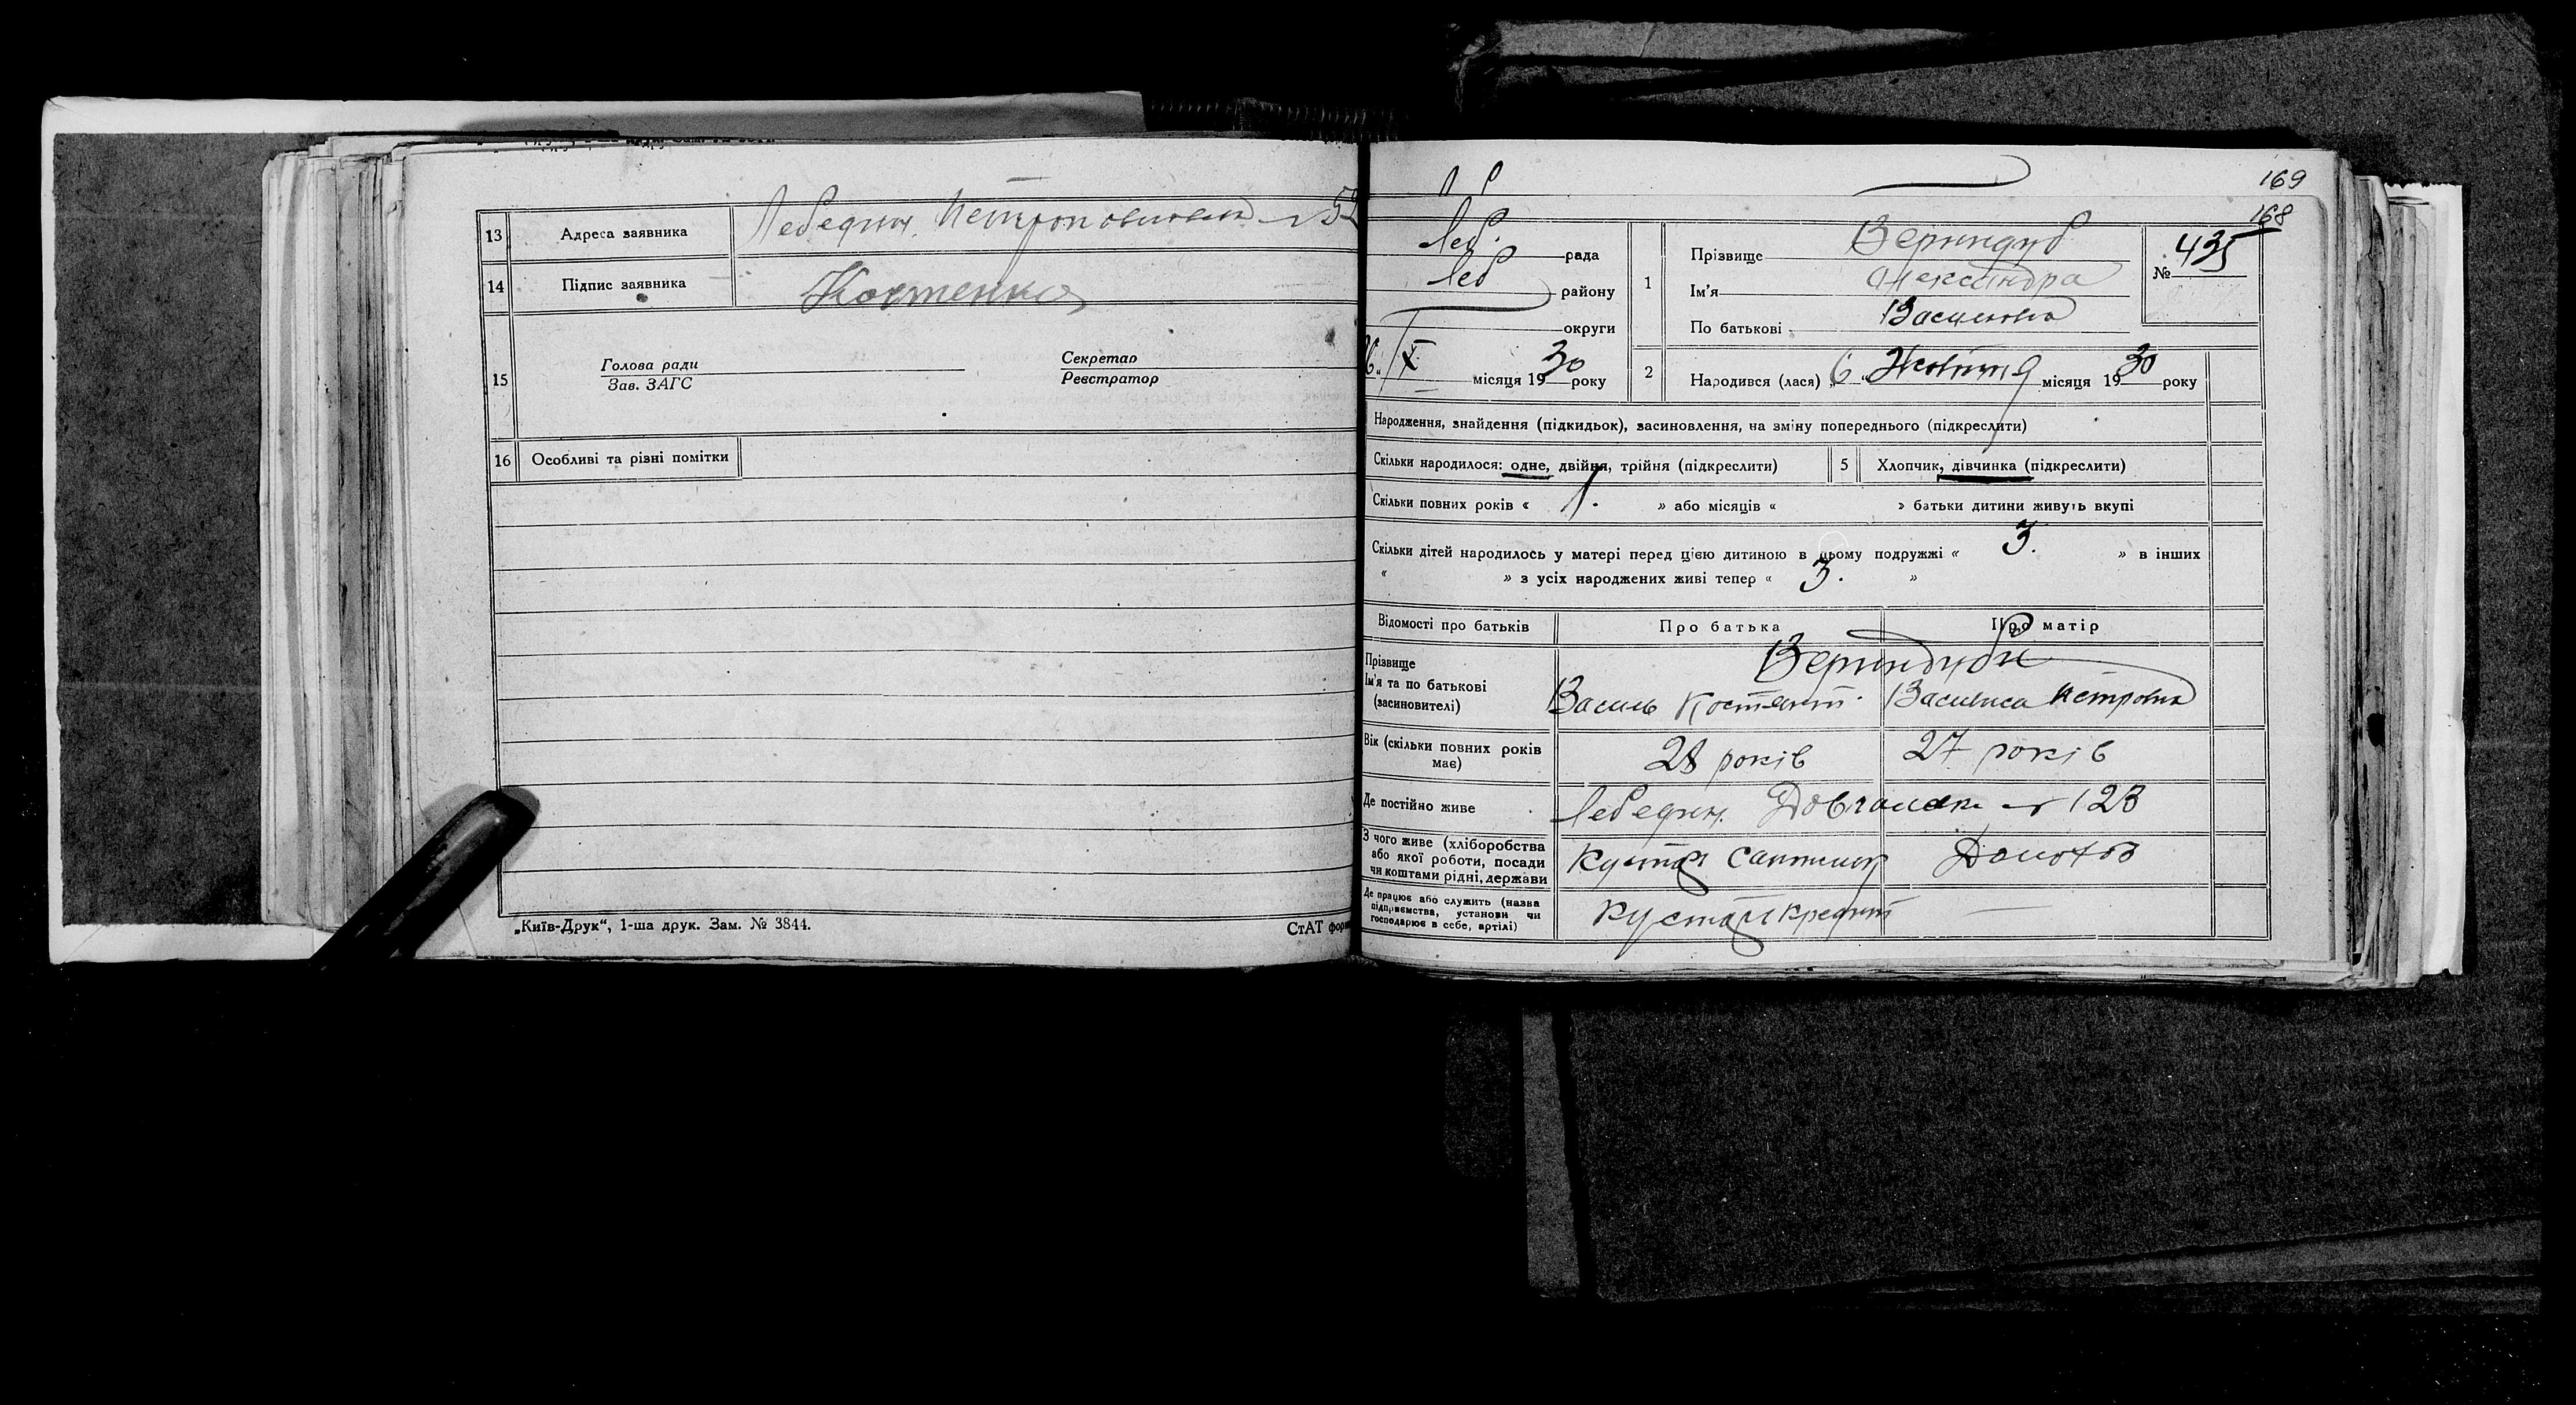 13 Адреса заявника Лебедин. 52
14 Підпис заявника Костенко
15 Голова ради
Зав. ЗАГС
Секретар
Реєстратор
16 Особливі та різні помітки
„Київ-Друк“, 1-ша друк. Зам. № 3844.
СтАТ
169
168
Леб. рада
Леб району
округи
X місяця 1930 року
1 Прізвище Вериндуб
Ім'я Александра
По батькові Васильовна
№ 435
2 Народився (лася) „6“ Жовтня місяця 1930 року
Народження, знайдення (підкидьок), засиновлення, на зміну попереднього (підкреслити)
Скільки народилося: одне, двійня, трійня (підкреслити) 5 Хлопчик, дівчинка (підкреслити)
Скільки повних років « 1. » або місяців « » батьки дитини живуть вкупі
Скільки дітей народилось у матері перед цією дитиною в цьому подружжі « 3. » в інших
« » з усіх народжених живі тепер « 3. »
Відомості про батьків Про батька Про матір
Прізвище
Ім'я та по батькові
(засиновителі)
Вериндуби
Василь Костянт. Василиса Петровна
Вік (скільки повних років
має)
28 років 27 років
Де постійно живе Лебедин. 123
З чого живе (хліборобства
або якої роботи, посади
чи коштами рідні, держави
Кустар Домохоз
Де працює або служить (назва
підприємства, установи чи
господарює в себе, артілі)
Кустарькредит —